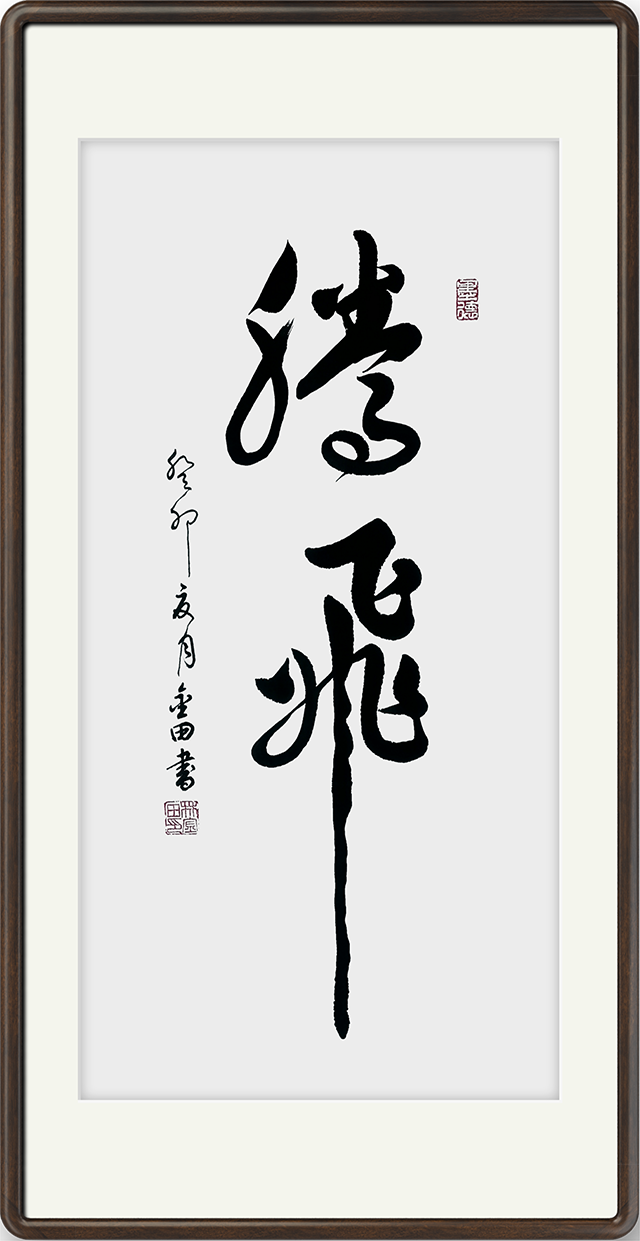 腾飞
癸卯夏月金田书